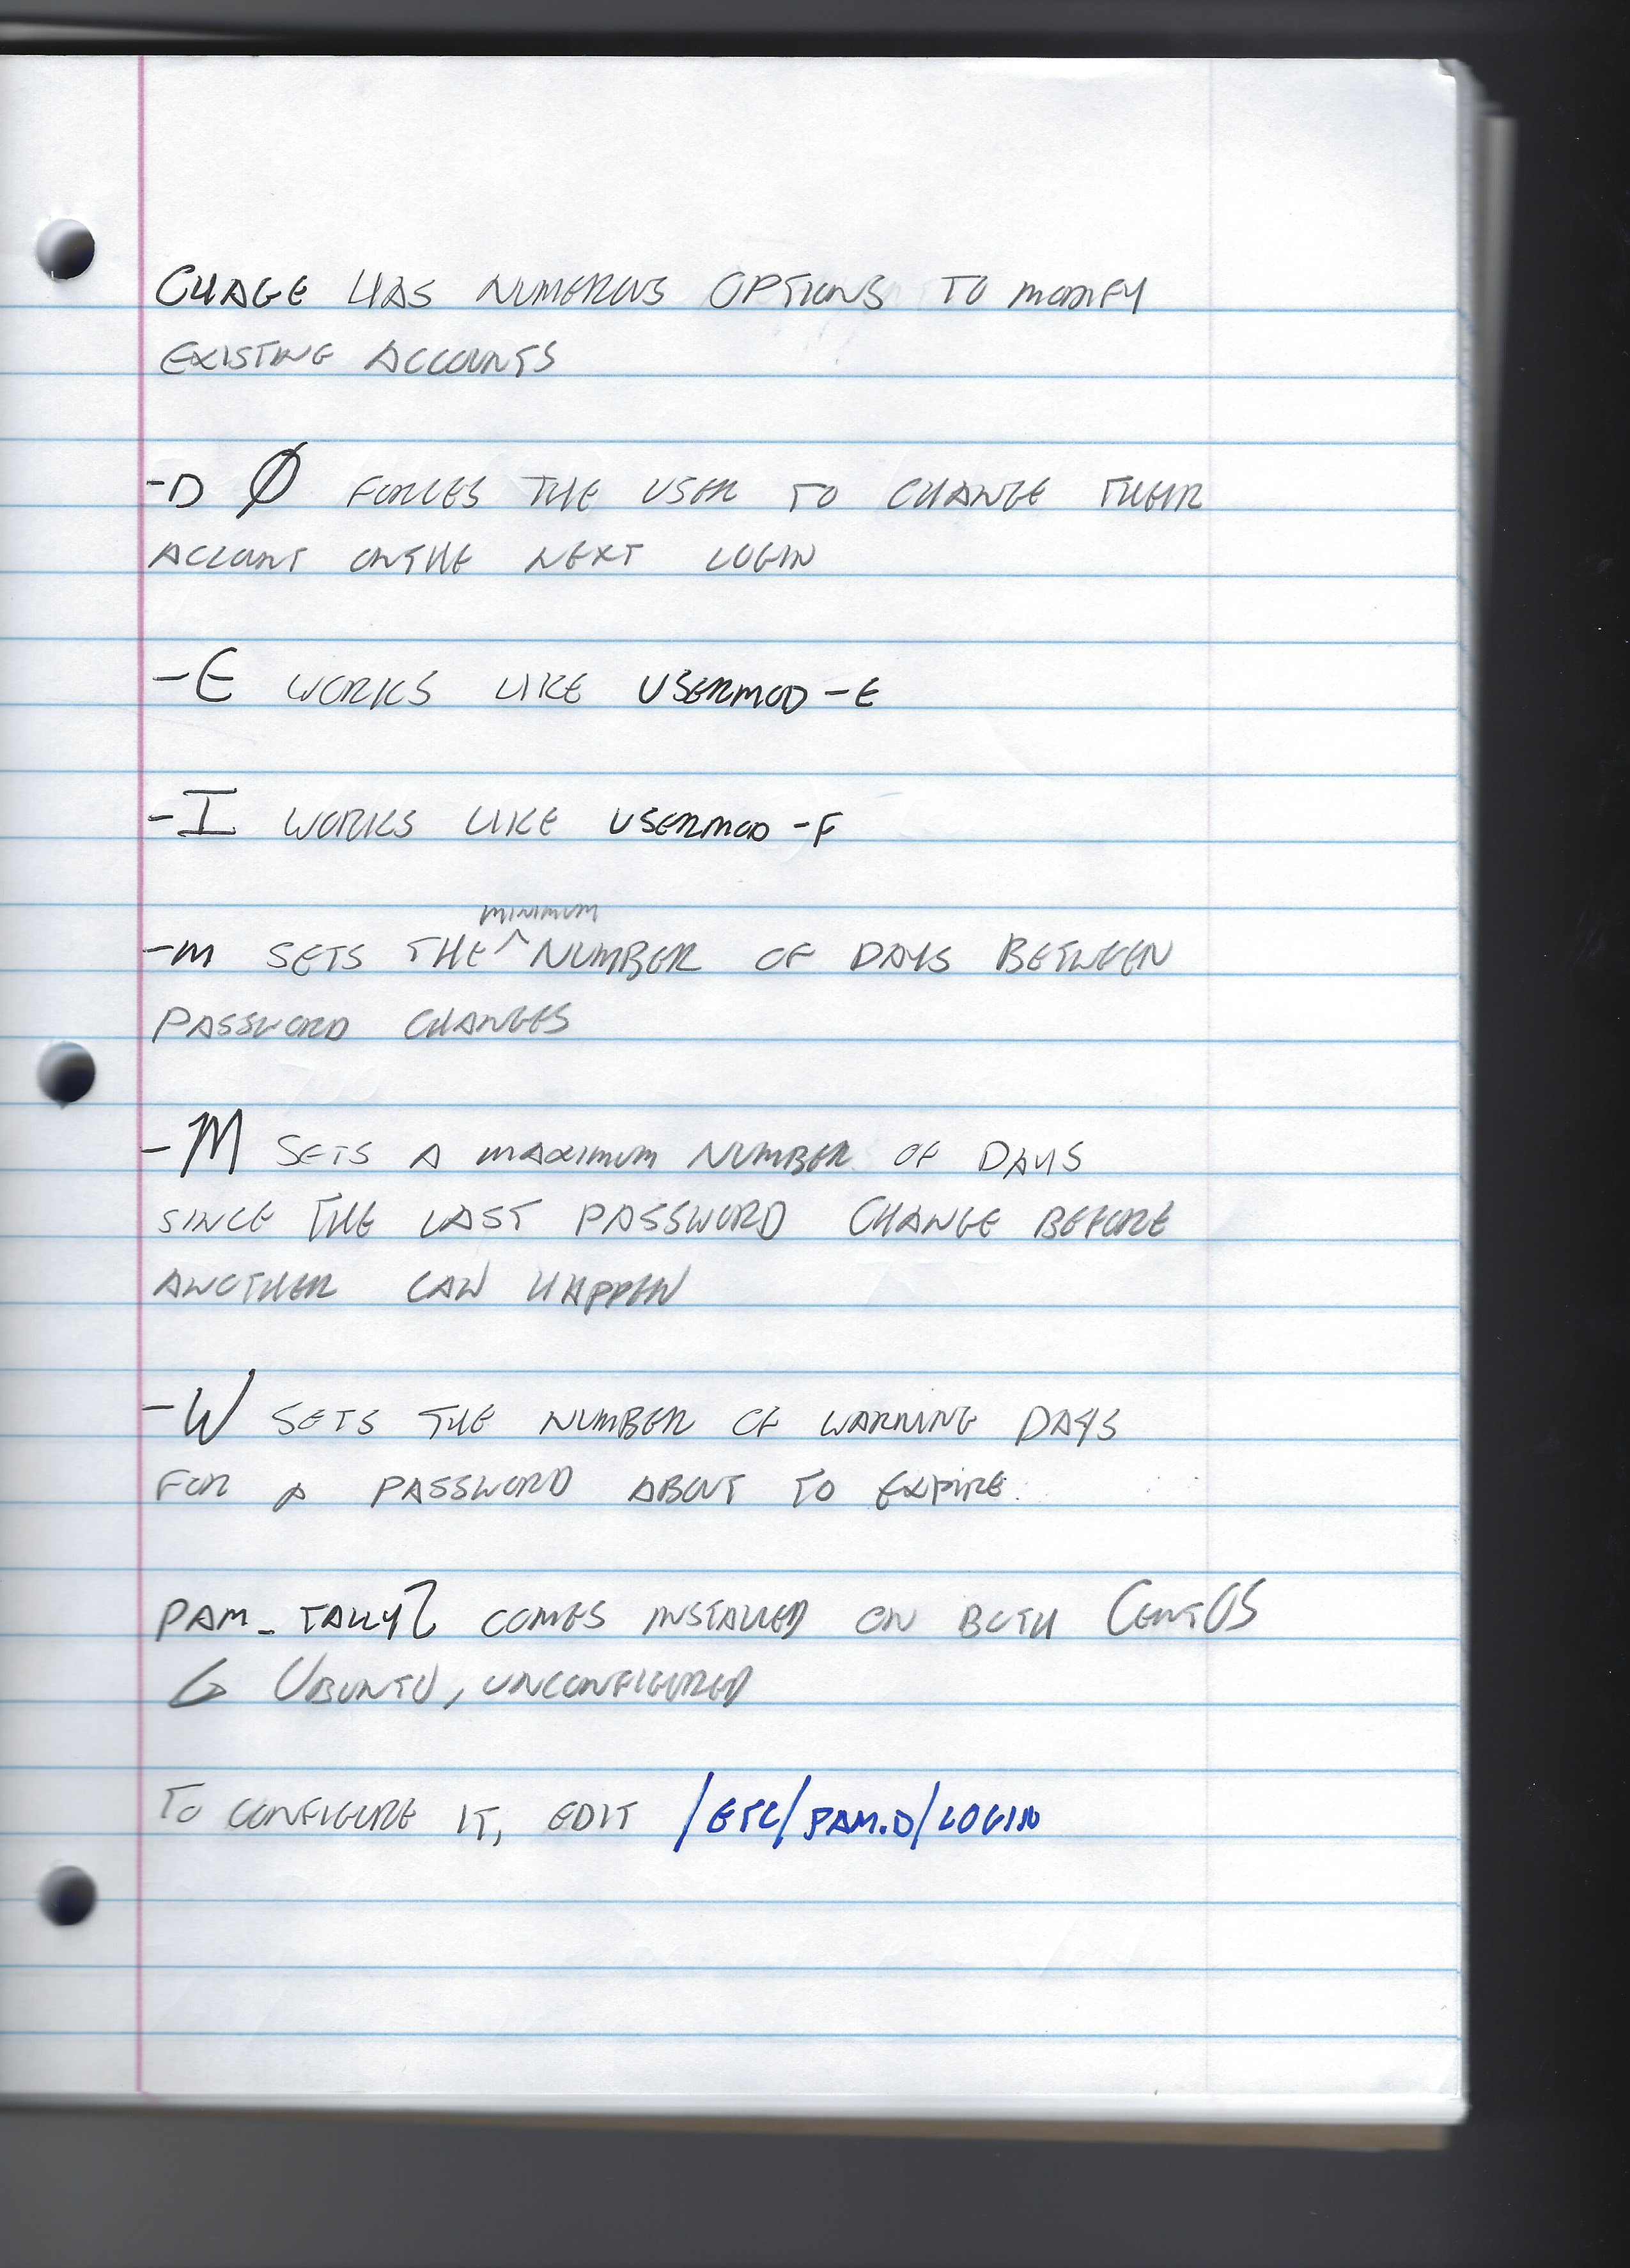 CHAGE HAS NUMEROUS OPTIONS TO MODIFY
EXISTING ACCOUNTS
-D Ø FORCES THE USER TO CHANGE THEIR
ACCOUNT ON THE NEXT LOGIN
-E WORKS LIKE USERMOD -E
-I WORKS LIKE USERMOD -F
-m SETS THE ^ MINIMUM NUMBER OF DAYS BETWEEN
PASSWORD CHANGES
-M SETS A MAXIMUM NUMBER OF DAYS
SINCE THE LAST PASSWORD CHANGE BEFORE
ANOTHER CAN HAPPEN
-W SETS THE NUMBER OF WARNING DAYS
FOR A PASSWORD ABOUT TO EXPIRE.
PAM_TALLY2 COMES INSTALLED ON BOTH CENTOS
& UBUNTU, UNCONFIGURED
TO CONFIGURE IT, EDIT /ETC/PAM.D/LOGIN